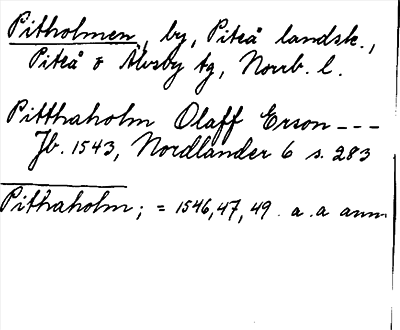 Pitholmen, by, Piteå landsk.,
Piteå o Älvsby tg, Norrb. l.
Pitthaholm Olaff Erson ---
Jb. 1543, Nordlander 6 s. 283
Pithaholm; = 1546, 47, 49. a. a